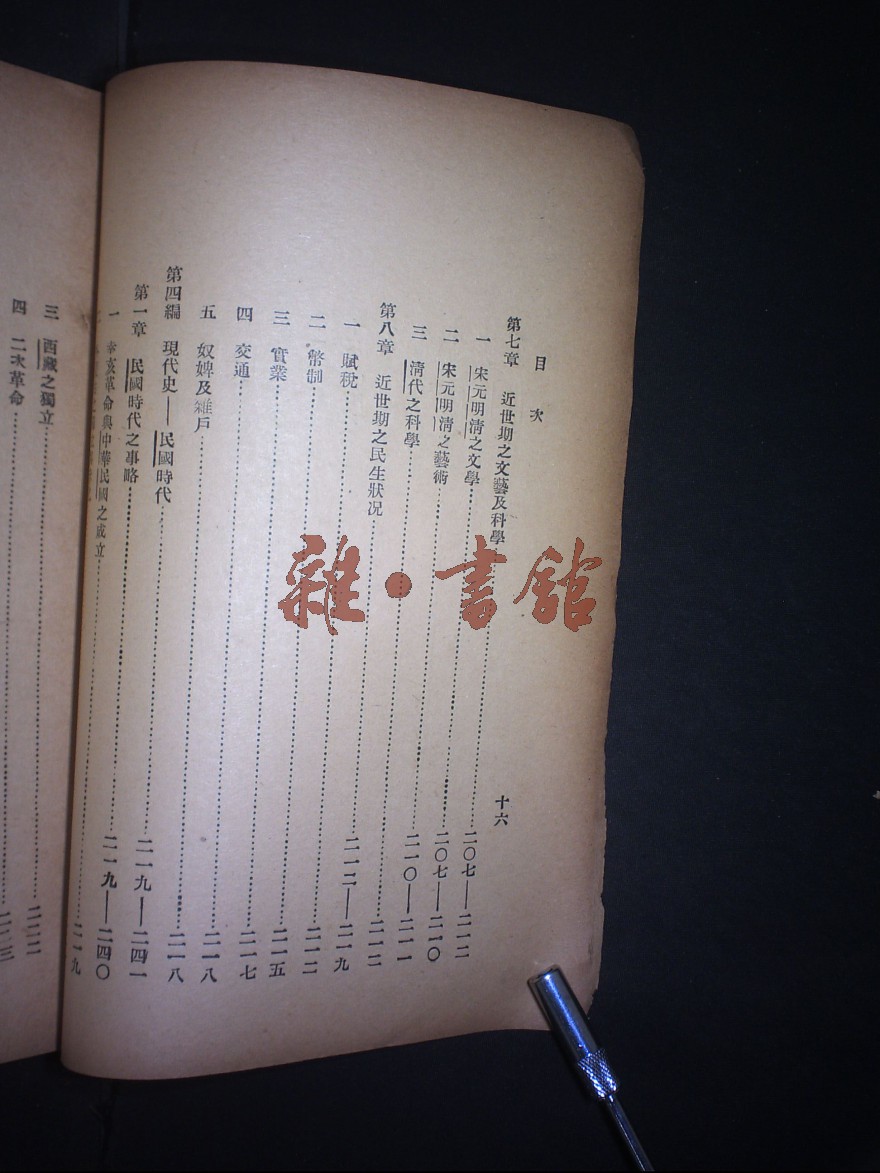 目次
十六
第七章 近世期之文藝及科學……二〇七—二一二
一 宋元明清之文學……二〇七—二一〇
二 宋元明清之藝術……二一〇—二一一
三 清代之科學……二一二
第八章 近世期之民生狀况……二一二—二一九
一 賦稅……二一二
二 幣制……二一五
三 實業……二一七
四 交通……二一八
五 奴婢及雜戶……二一八
第四編 現代史—民國時代……二一九—二四一
第一章 民國時代之事略……二一九—二四〇
一 辛亥革命與中華民國之成立……二一九
三 西藏之獨立……二二二
四 二次革命……二二三
雜·書館